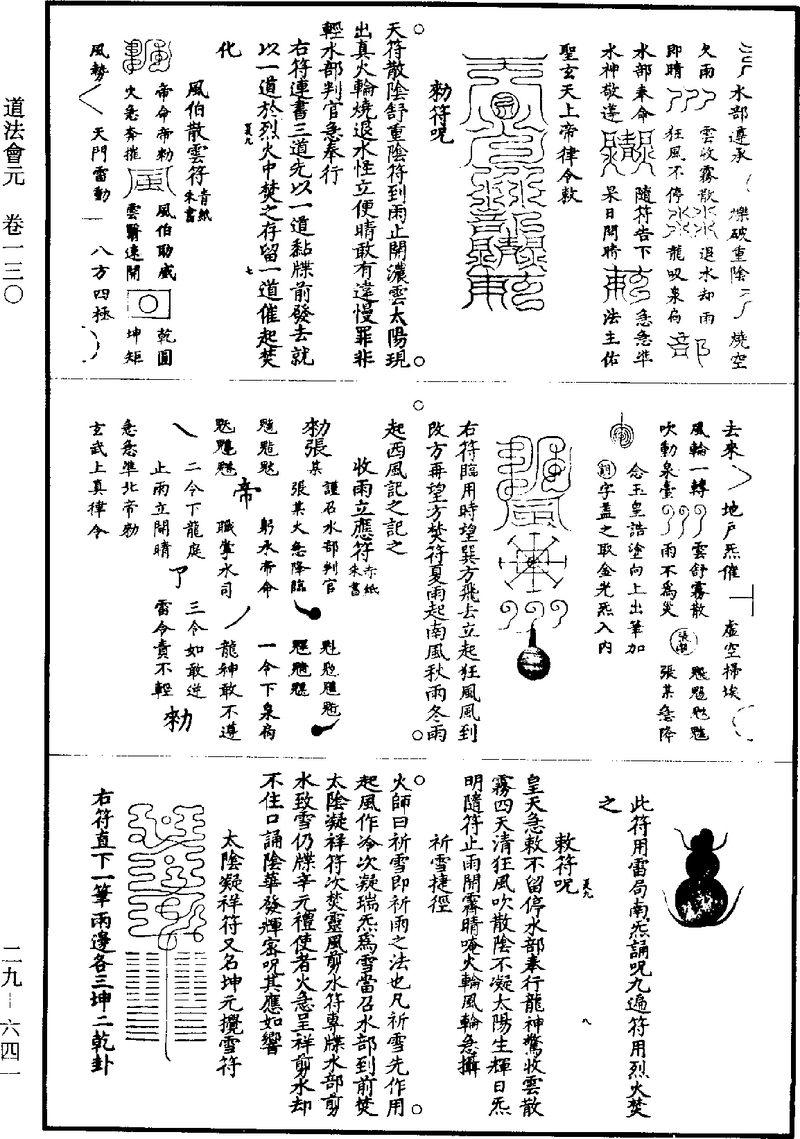 道法會元 卷一三〇
二九-六四一
水部遵承 爍破重陰 燒空
久雨 雲收霧散 退水却雨
即晴 狂風不停 龍收泉扃
水部奉命 隨符告下 急急準
水神敬遵 杲日開晴 法主佑
聖玄天上帝律令敕
勑符呪
天符散陰舒重陰符到雨止開濃雲太陽現
出真火輪燒退水怪立便晴敢有違慢罪非
輕水部判官急奉行
右符連書三道先以一道黏牒前發去就
以一道於烈火中焚之存留一道催起焚
化
風伯散雲符 青紙朱書
帝命帝勑 風伯助威 乾圓
火急奔摧 雲翳速開 坤矩
風勢 天門雷動 八方四極
去來 地户炁催 虛空掃埃
風輪一轉 雲舒霧散 魁魓
吹動泉臺 雨不為災 張某急降
念玉皇誥塗向上出筆加
字蓋之取金光炁入內
右符臨用時望巽方飛去立起狂風風到
改方再望方焚符夏雨起南風秋雨冬雨
起西風記之記之
收雨立應符 赤紙朱書
勑張某 謹召水部判官
張某火急降臨
帝 躬承帝命 一令下泉扃
職掌水司 龍神敢不遵
二令下龍庭 三令如敢逆
止雨立開晴 雷令責不輕
急急準北帝勑 勑
玄武上真律令
此符用雷局南炁誦呪九遍符用烈火焚
之
敕符呪
皇天急敕不留停水部奉行龍神驚收雲散
霧四天清狂風吹散陰不凝太陽生輝日炁
明隨符止雨開霽晴唵火輪風輪急攝
祈雪捷徑
火師曰祈雪即祈雨之法也凡祈雪先作用
起風作冷次凝瑞炁為雪當召水部到前焚
太陰凝祥符次焚靈風剪水符專牒水部剪
水致雪仍牒辛元禮使者火急呈祥剪水却
不住口誦陰華發輝密呪其應如響
太陰凝祥符又名坤元攪雪符
右符直下一筆兩邊各三坤二乾卦